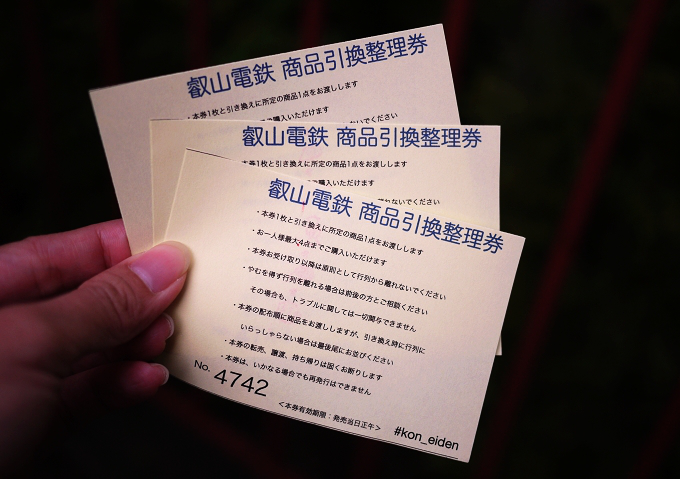 叡山電鉄 商品引換整理券
・本券1枚と引き換えに所定の商品1点をお渡しします
購入いただけます
ないでください
叡山電鉄 商品引換整理券
本券1枚と引き換えに所定の商品1点をお渡しします
ご購入いただけます
れないでください
叡山電鉄 商品引換整理券
・本券1枚と引き換えに所定の商品1点をお渡しします
・お一人様最大4点までご購入いただけます
・本券お受け取り以降は原則として行列から離れないでください
・やむを得ず行列を離れる場合は前後の方とご相談ください
その場合も、トラブルに関しては一切関与できません
・本券の配布順に商品をお渡ししますが、引き換え時に行列に
いらっしゃらない場合は最後尾にお並びください
・本券の転売、譲渡、持ち帰りは固くお断りします
・本券は、いかなる場合でも再発行はできません
No. 4742
＜本券有効期限：発売当日正午＞
#kon_eiden